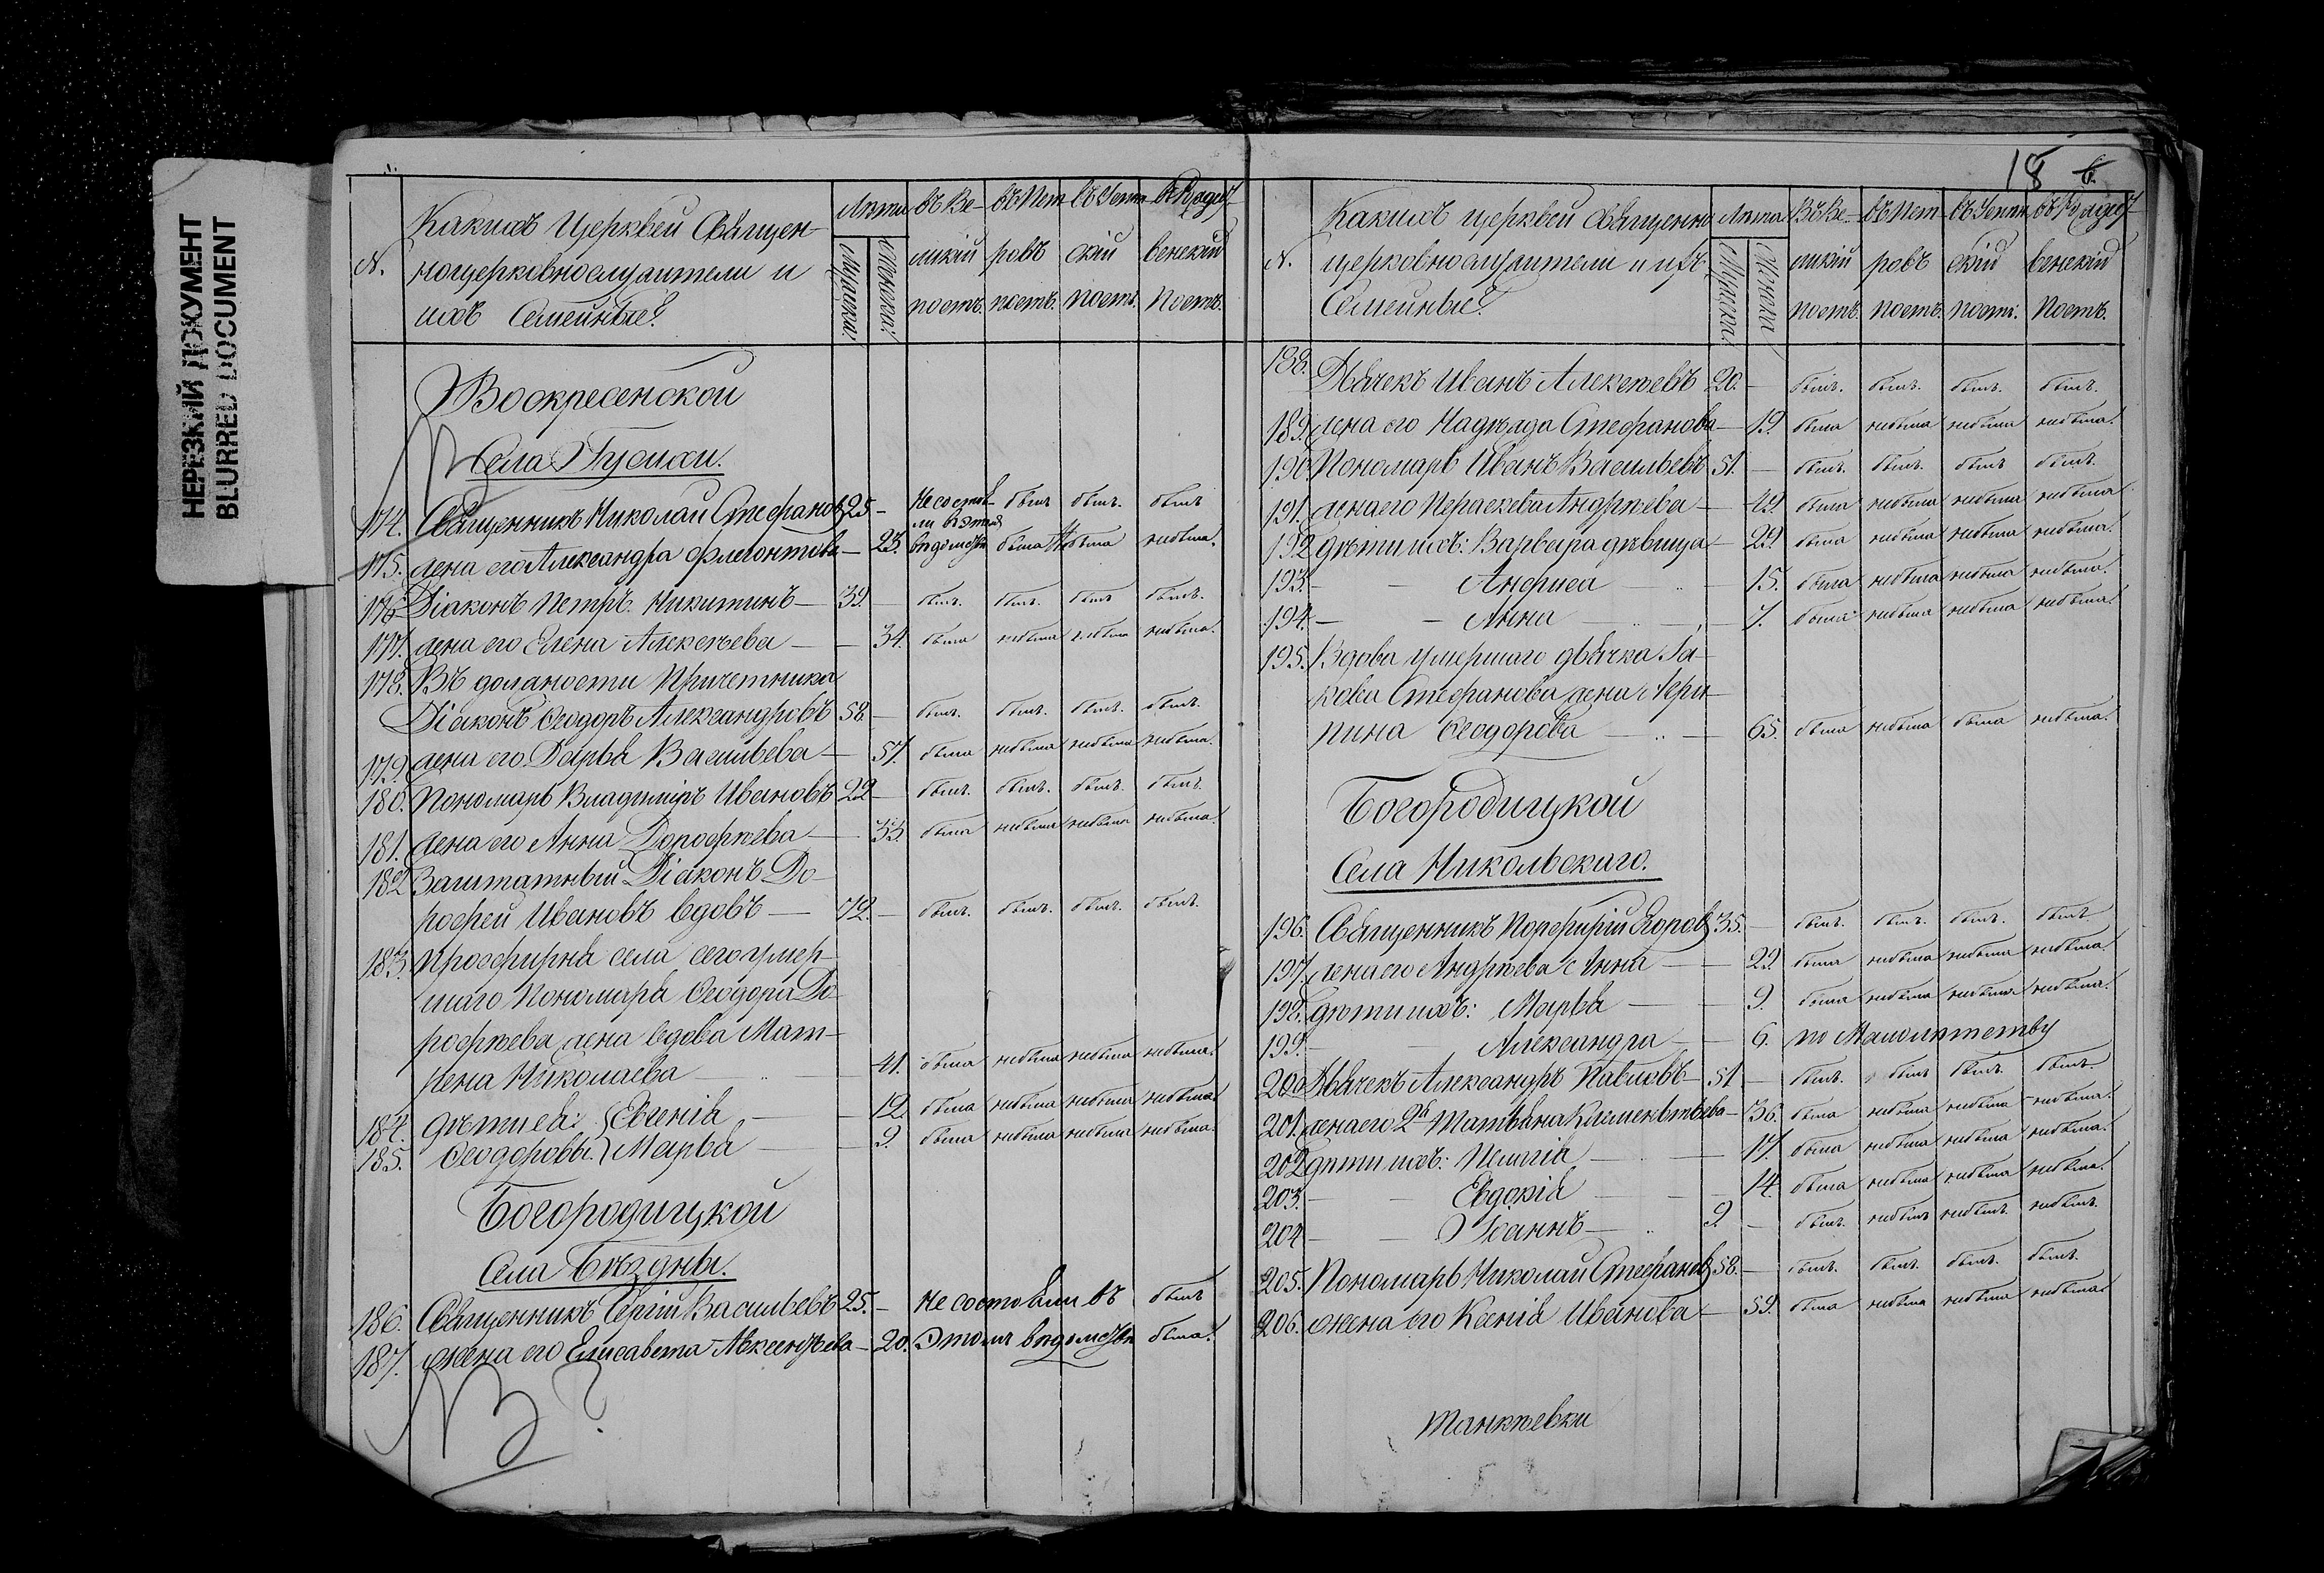 НЕРЕЗКИЙ ДОКУМЕНТ
BLURRED DOCUMENT
N. Какихъ Церквей Священ- Лѣта въ Ве- въ Пет въ Успен въ Рождест
ноцерковнослужители и Мужска: Женска: ликій ровъ скій венский
ихъ Семейные? постъ. постъ. постъ. Постъ.
Воскресенской
Села Гусихи.
174. Священникъ Николай Стефановъ 25 - Не состоя- былъ былъ. былъ
ли въ этомъ
175. жена его Александра Флегонтова - 23. вѣдомствѣ была Небыла небыла.
176. Діаконъ Петръ Никитинъ - 39. - былъ. былъ. былъ былъ.
177. жена его Елена Алексѣева - - 34. была небыла небыла небыла.
178. Въ должности Причетника
Діаконъ Ѳеодоръ Александровъ 58. - былъ. былъ. былъ. былъ.
179. жена его Дарья Васильева - 57. была небыла небыла небыла.
180. Пономарь Владиміръ Ивановъ 22 - былъ. былъ. былъ. былъ.
181. жена его Анна Дорофѣева - 33. была небыла небыла небыла.
182 Заштатный Діаконъ До-
рофей Ивановъ вдовъ - 72. - былъ. былъ. былъ. былъ.
183. Просфирня села сего умер-
шаго Пономаря Ѳеодора До-
рофѣева жена вдова Мат-
рена Николаева - 41. была небыла небыла небыла.
184. дѣти ея: Евгенія - - 12. была небыла небыла небыла
185. Ѳеодоровы. Марья - - 9. была небыла небыла небыла.
Богородицкой
Села Бездны.
186. Священникъ Сергій Васильевъ 25. - не состояли въ былъ
187. жена его Елисавета Авксентьева - 20. Этомъ вѣдомствѣ была.
18
N. Какихъ церквей Священно Лѣта Въ Ве- въ Пет- въ Успен въ Рождест
церковнослужители и ихъ Мужска: Женска ликій ровъ скій венскій
Семейные? постъ постъ. постъ. Постъ.
188. Дьячекъ Иванъ Алексѣевъ 20. - былъ. былъ. былъ. былъ.
189. жена его Надежда Стефанова - 19. была небыла небыла небыла.
190. Пономарь Иванъ Васильевъ 51. - былъ. былъ. былъ былъ.
191. жена его Параскева Андрѣева - 49 была небыла небыла небыла
192 дѣти ихъ: Варвара дѣвица - 22 была небыла небыла небыла.
193. - - Анфиса - 15. была небыла небыла небыла.
194. - - Анна - 7. была небыла небыла небыла.
195. Вдова умершаго дьячка Іа-
кова Стефанова жена Ири-
нина Ѳеодорова - 65. была небыла была небыла.
Богородицкой
Села Никольскаго.
196. Священникъ Порфирій Егоровъ 35. - былъ. былъ. былъ. былъ
197. жена его Андрѣева Анна - - 29. была небыла небыла небыла.
198. дѣти ихъ: Марья - - 9. была небыла небыла небыла.
199. - - Александра - - 6. по Малолѣтству
200 Дьячекъ Александръ Павловъ - 51 - былъ. былъ былъ. былъ.
201. жена его 2я Татьяна Климентьева - 36. была небыла небыла небыла.
202 дѣти ихъ: Пелагія - - 17. была небыла небыла небыла.
203. - - Евдокія - - 14. была небыла небыла небыла.
204 - - Іоаннъ - 9. - былъ. небылъ небылъ. небылъ.
205. Пономарь Николай Стефановъ 58. - былъ. былъ. былъ. былъ.
206. жена его Ксенія Иванова - 59. была небыла небыла небыла.
Танкѣевки